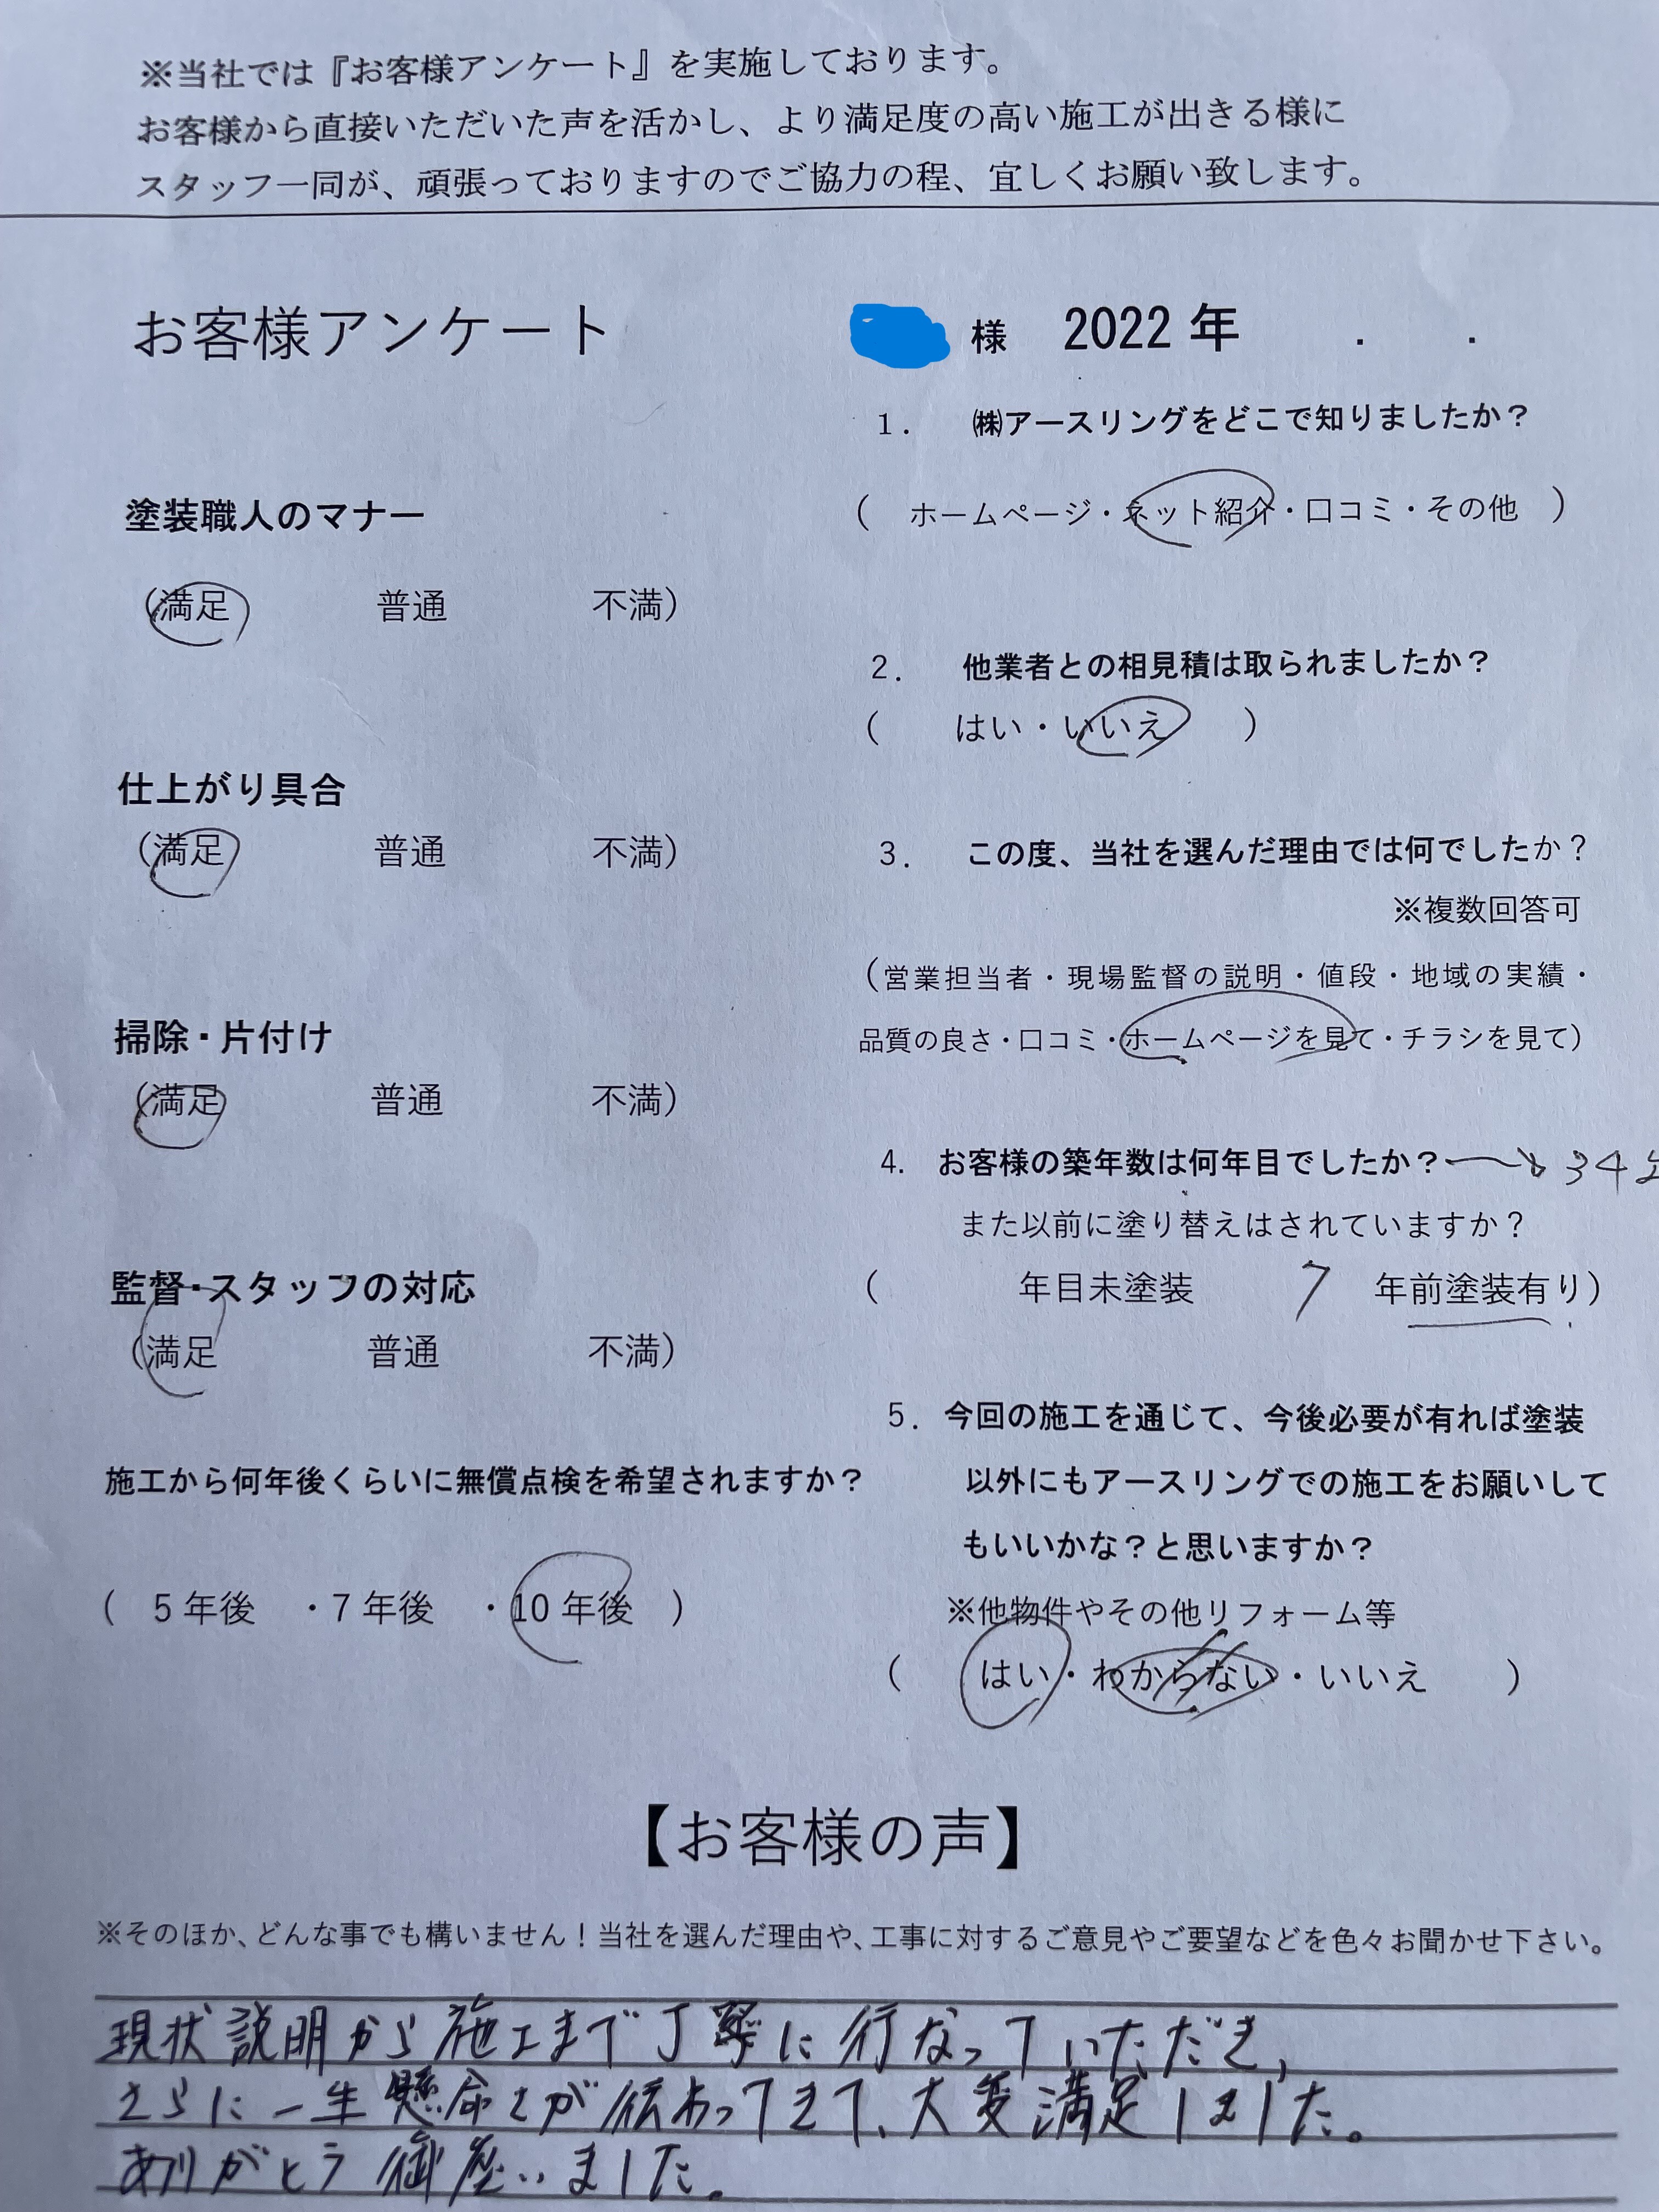 ※当社では『お客様アンケート』を実施しております。
お客様から直接いただいた声を活かし、より満足度の高い施工が出きる様に
スタッフ一同が、頑張っておりますのでご協力の程、宜しくお願い致します。
お客様アンケート
様 2022年 . .
塗装職人のマナー
(満足 普通 不満)
仕上がり具合
(満足 普通 不満)
掃除・片付け
(満足 普通 不満)
監督・スタッフの対応
(満足 普通 不満)
施工から何年後くらいに無償点検を希望されますか?
( 5年後 ・7年後 ・10年後 )
1. ㈱アースリングをどこで知りましたか?
( ホームページ・ネット紹介・口コミ・その他 )
2. 他業者との相見積は取られましたか?
( はい・いいえ )
3. この度、当社を選んだ理由では何でしたか?
※複数回答可
(営業担当者・現場監督の説明・値段・地域の実績・
品質の良さ・口コミ・ホームページを見て・チラシを見て)
4. お客様の築年数は何年目でしたか? → 34
また以前に塗り替えはされていますか?
( 年目未塗装 7 年前塗装有り)
5. 今回の施工を通じて、今後必要が有れば塗装
以外にもアースリングでの施工をお願いして
もいいかな?と思いますか?
※他物件やその他リフォーム等
( はい・わからない・いいえ )
【お客様の声】
※そのほか、どんな事でも構いません!当社を選んだ理由や、工事に対するご意見やご要望などを色々お聞かせ下さい。
現状説明から施工まで丁寧に行なっていただき、
さらに一生懸命さが伝わってきて、大変満足しました。
ありがとう御座いました。